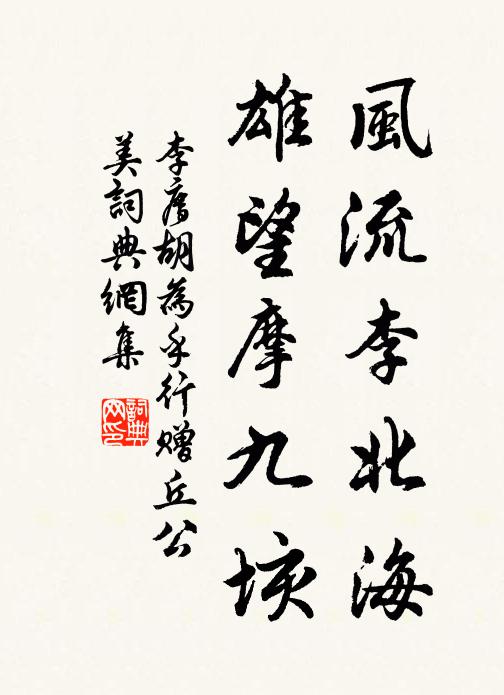 風流李北海
雄望摩九垓
李廌胡為乎行贈丘公
美詞典網集
詞典
网印